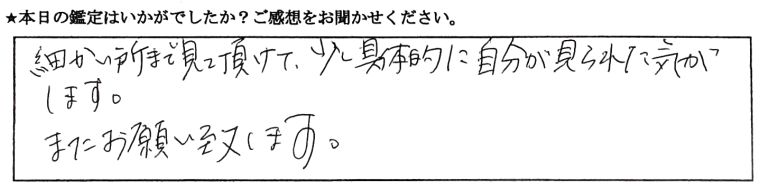 ★本日の鑑定はいかがでしたか？ご感想をお聞かせください。
細かい所まで見て頂けて、少し具体的に自分が見られた気が
します。
またお願い致します。